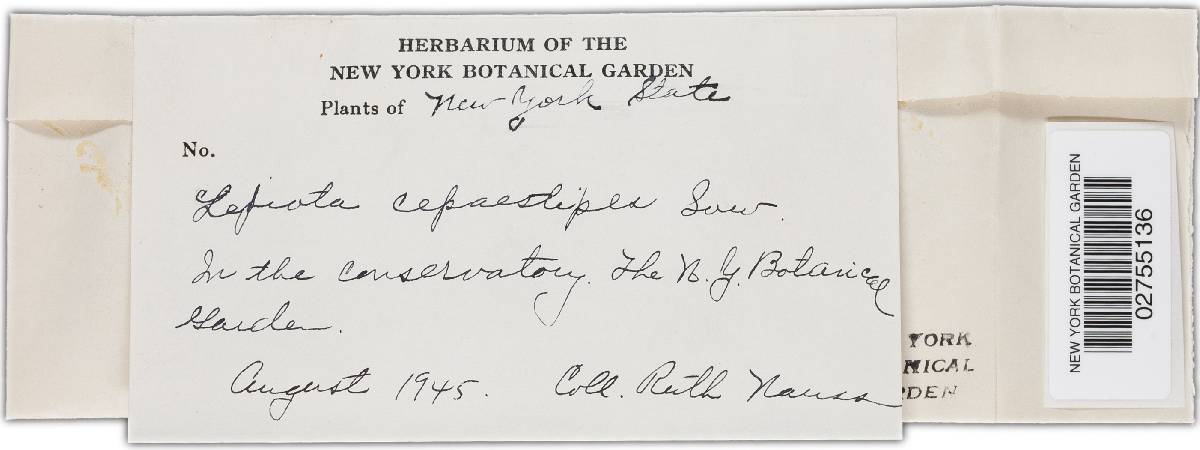 HERBARIUM OF THE
NEW YORK BOTANICAL GARDEN
Plants of New York State
No.
Lepiota cepaestipes Sow.
In the conservatory. The N. Y. Botanical
Garden.
August 1945. Coll. Ruth Nauss
YORK
NICAL
DEN
NEW YORK BOTANICAL GARDEN
02755136